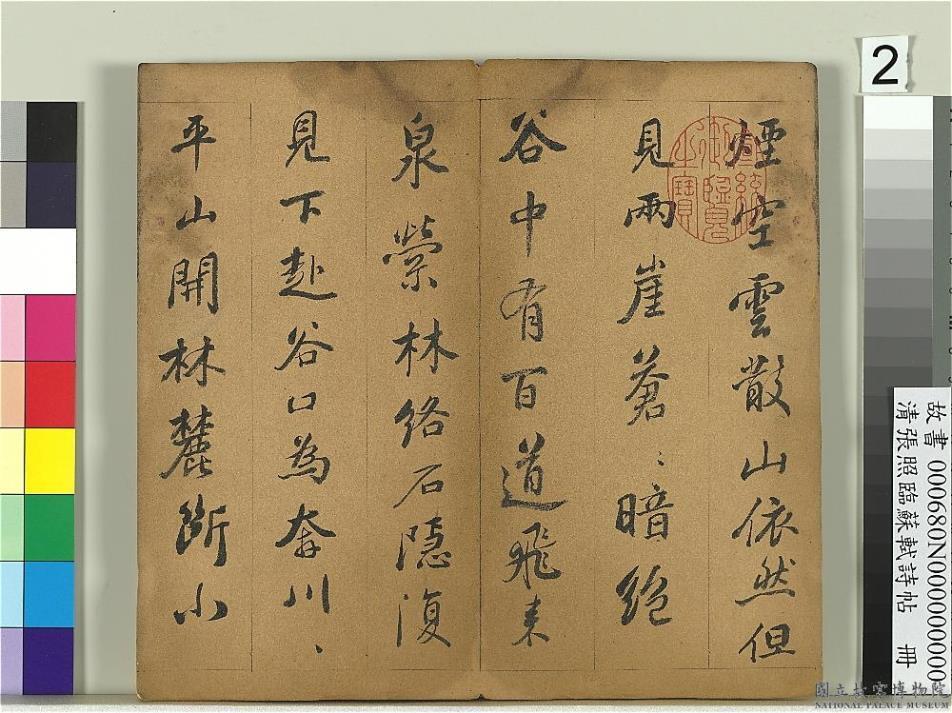 煙空雲散山依然但
見兩崖蒼〻暗絶
谷中有百道飛来
泉縈林絡石隱復
見下赴谷口為奔川〻
平山開林麓斷小
宣統御覽之寶
2
故書 000680N000000000
清張照臨蘇軾詩帖 冊
國立故宮博物院
NATIONAL PALACE MUSEUM